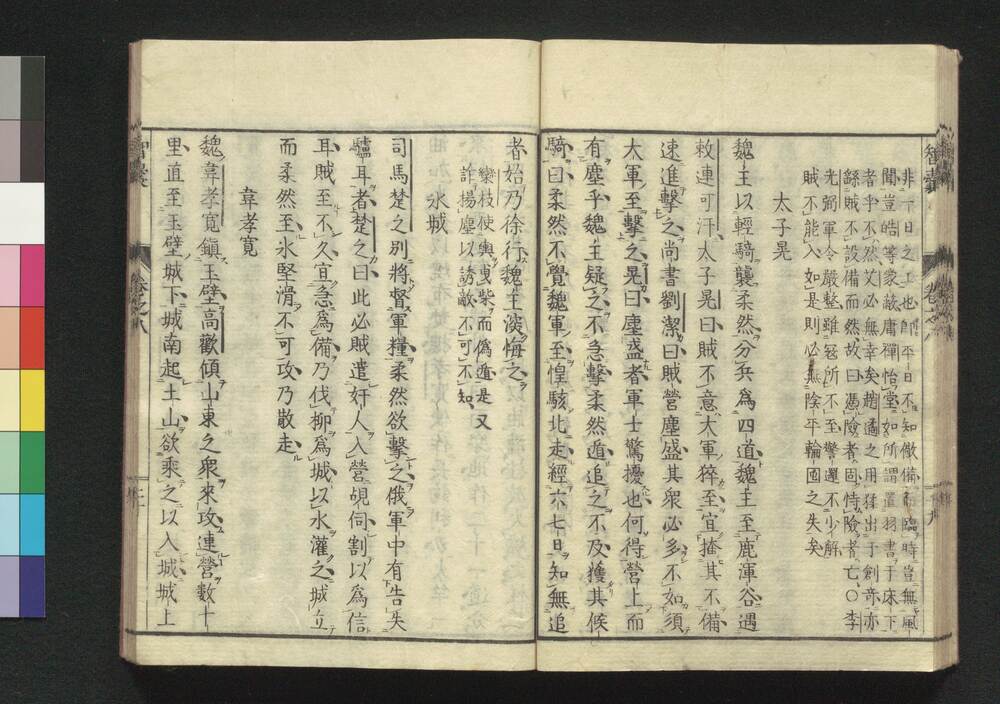 非一日之工也師平日不知儆備而臨時豈無風
聞豈皓等象詼庸禪怡堂如所謂置羽書于床下
者乎不然艾必無幸矣趙遹之用猱出于創奇亦
繇賊不設備而然故曰憑險者固恃險者亡○李
先弼軍令嚴整雖寇所不至警邏不少解
賊不能入如是則必無陰平輪囤之失矣
太子晃
魏主以輕騎襲柔然分兵為四道魏主至鹿渾谷遇
敕連可汗太子晃曰賊不意大軍猝至宜掩其不備
速進擊之尚書劉潔曰賊營塵盛其衆必多不如須
大軍至擊之晃曰塵盛者軍士驚擾也何得營上而
有塵乎魏主疑之不急擊柔然遁追之不及獲其候
騎曰柔然不覺魏軍至惶駭北走經六七日知無追
者始乃徐行魏主深悔之
欒枝使輿曳柴而偽遁是又
詐揚塵以誘敵不可不知
氷城
司馬楚之別將督軍糧柔然欲擊之俄軍中有告失
驢耳者楚之曰此必賊遣奸人入營覘伺割以為信
耳賊至不久宜急為備乃伐柳為城以水灌之城立
而柔然至氷堅滑不可攻乃散走
韋孝寬
魏韋孝寬鎭玉壁高歡傾山東之衆來攻連營數十
里直至玉壁城下城南起土山欲乘之以入城城上
智囊
卷之八